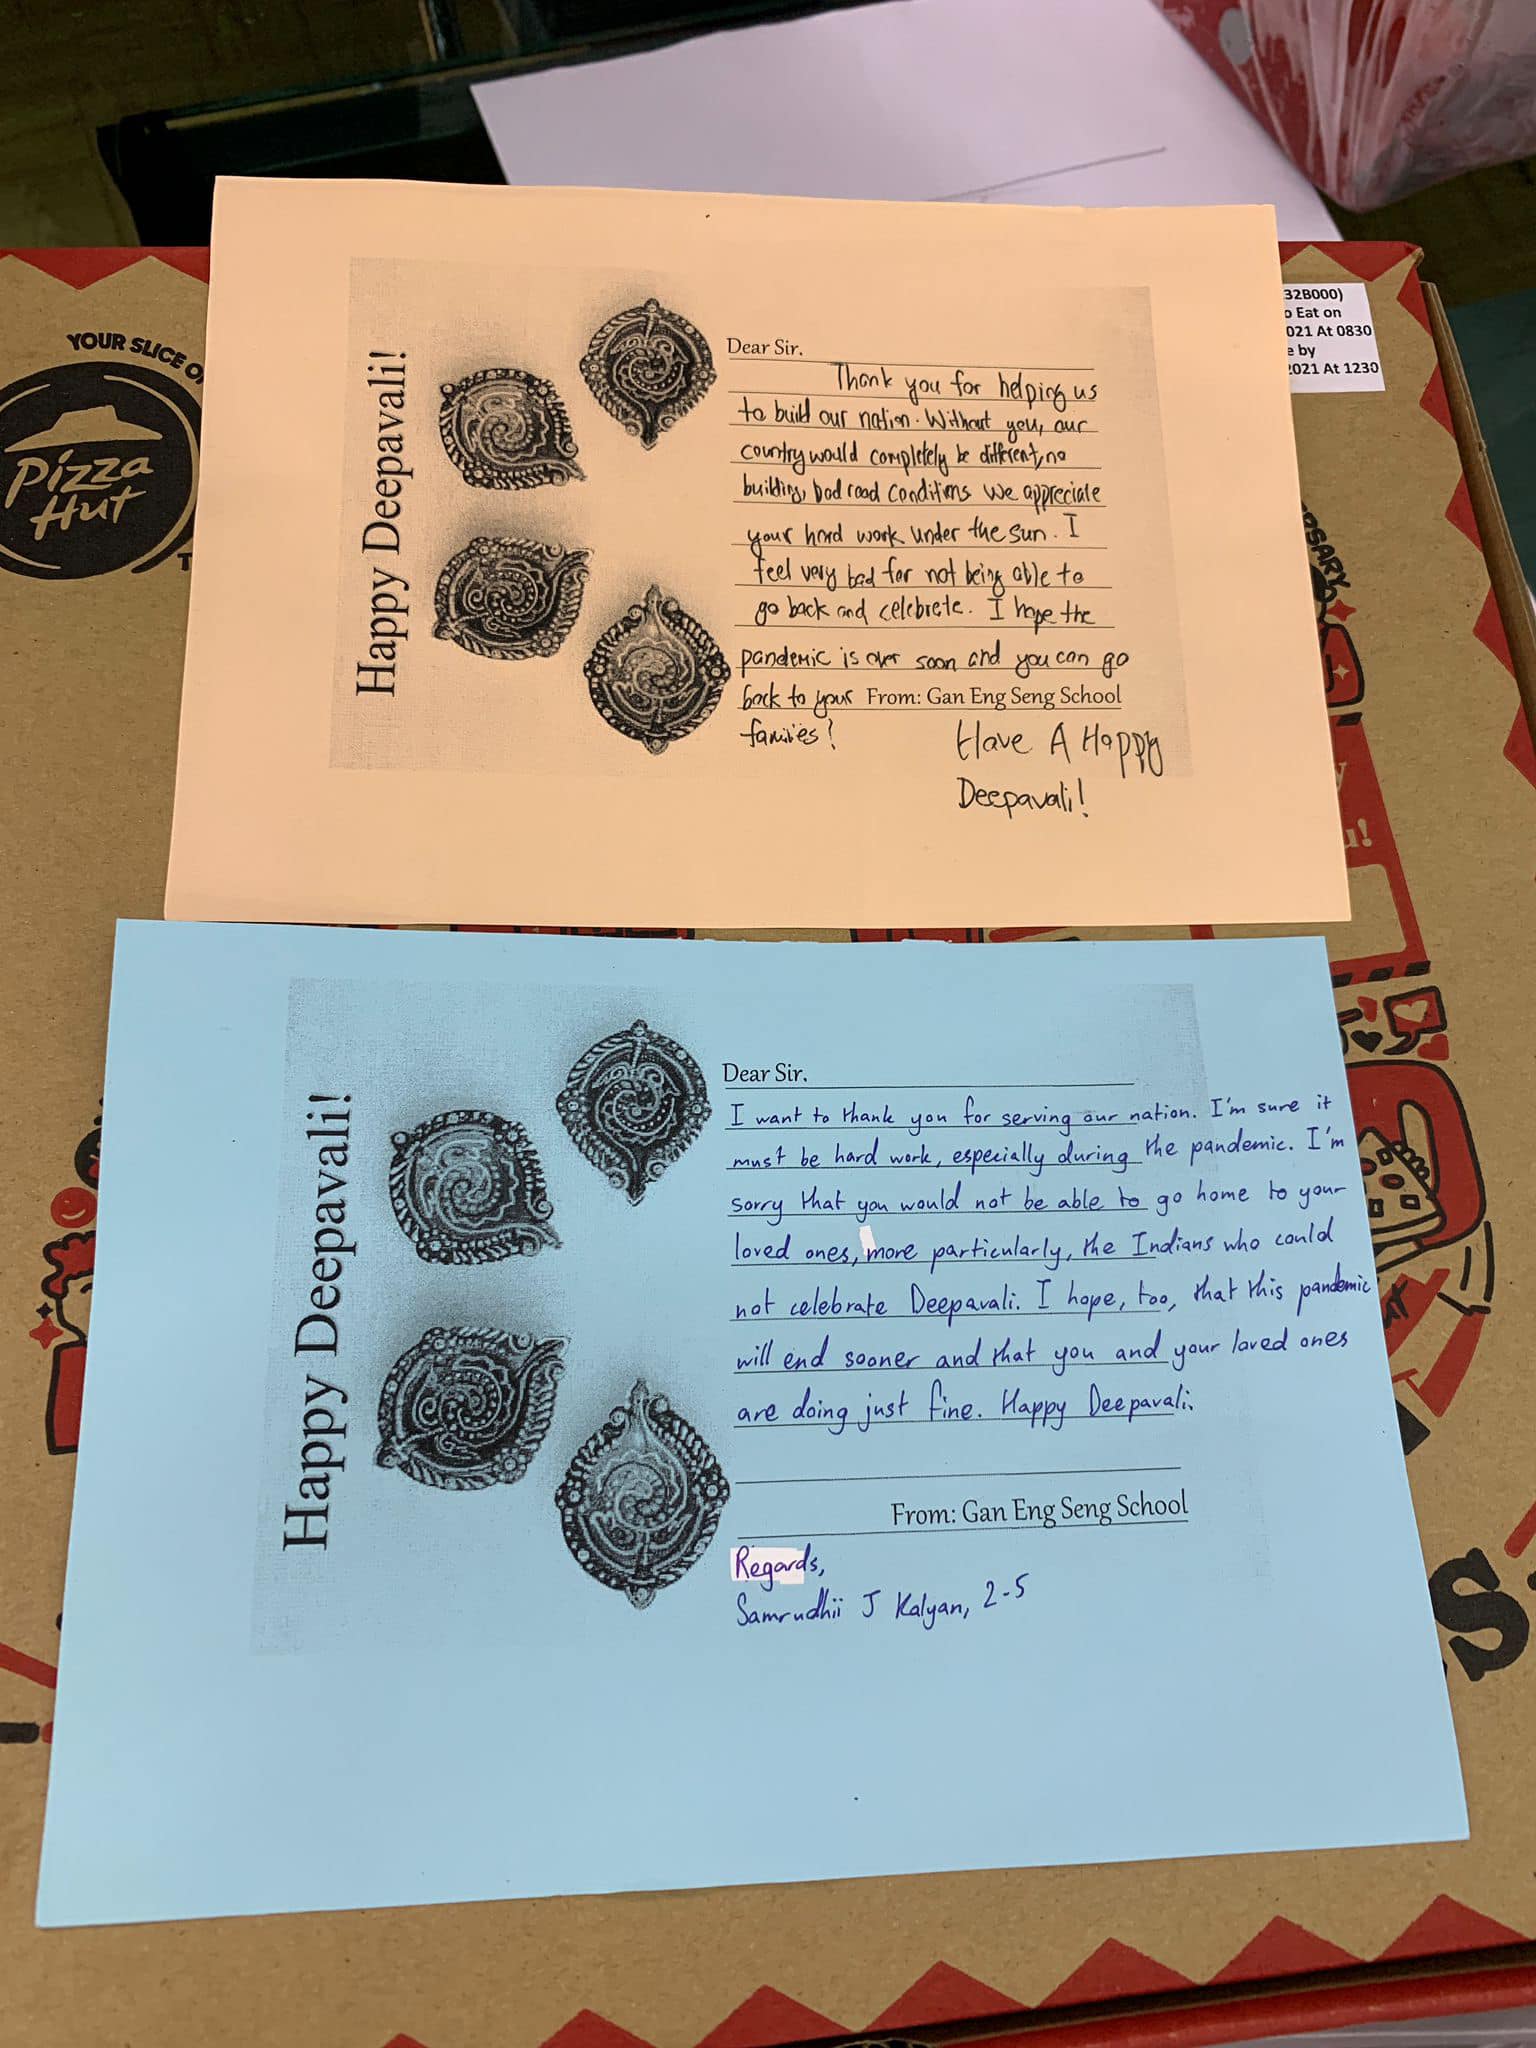 YOUR SLICE
Pizza
Hut
32B000)
Eat on
021 At 0830
e by
2021 At 1230
Happy Deepavali!
Dear Sir.
Thank you for helping us
to build our nation. Without you, our
country would completely be different, no
building, bad road conditions we appreciate
your hard work under the sun. I
feel very bad for not being able to
go back and celebrate. I hope the
pandemic is over soon and you can go
back to your From: Gan Eng Seng School
families!
Have A Happy
Deepavali!
Happy Deepavali!
Dear Sir.
I want to thank you for serving our nation. I'm sure it
must be hard work, especially during the pandemic. I'm
sorry that you would not be able to go home to your
loved ones, more particularly, the Indians who could
not celebrate Deepavali. I hope, too, that this pandemic
will end sooner and that you and your loved ones
are doing just fine. Happy Deepavali.
From: Gan Eng Seng School
Regards,
Samrudhii J Kalyan, 2-5